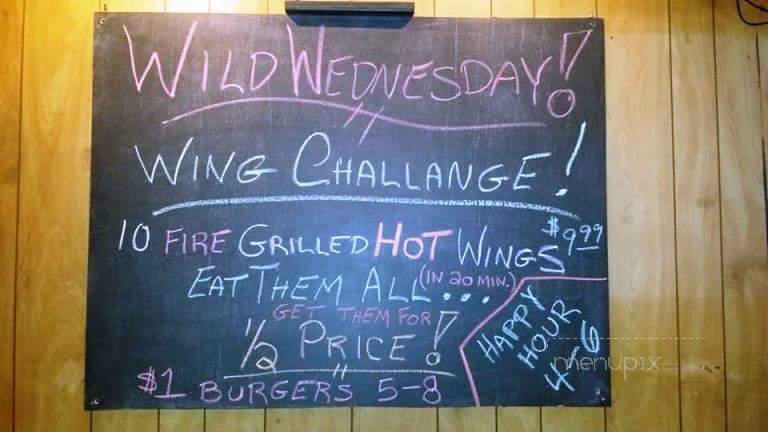 WILD WEDNESDAY!
WING CHALLANGE!
10 FIRE GRILLED HOT WINGS $9.99
EAT THEM ALL... (IN 20 MIN.)
GET THEM FOR
1/2 PRICE!
$1 BURGERS 5-8
HAPPY
HOUR
4-6
menupix